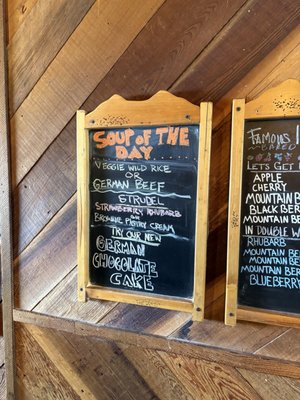 SOUP OF THE
DAY
VEGGIE WILD RICE
OR
GERMAN BEEF
STRUDEL
STRAWBERRY RHUBARB
OR
BROWNIE PASTRY CREAM
TRY OUR NEW
GERMAN
CHOCOLATE
CAKE
FAMOUS
LETS GET
APPLE
CHERRY
MOUNTAIN
BLACK BERR
MOUNTAIN
IN DOUBLE
RHUBARB
MOUNTAIN
MOUNTAIN
MOUNTAIN BER
BLUEBERRY